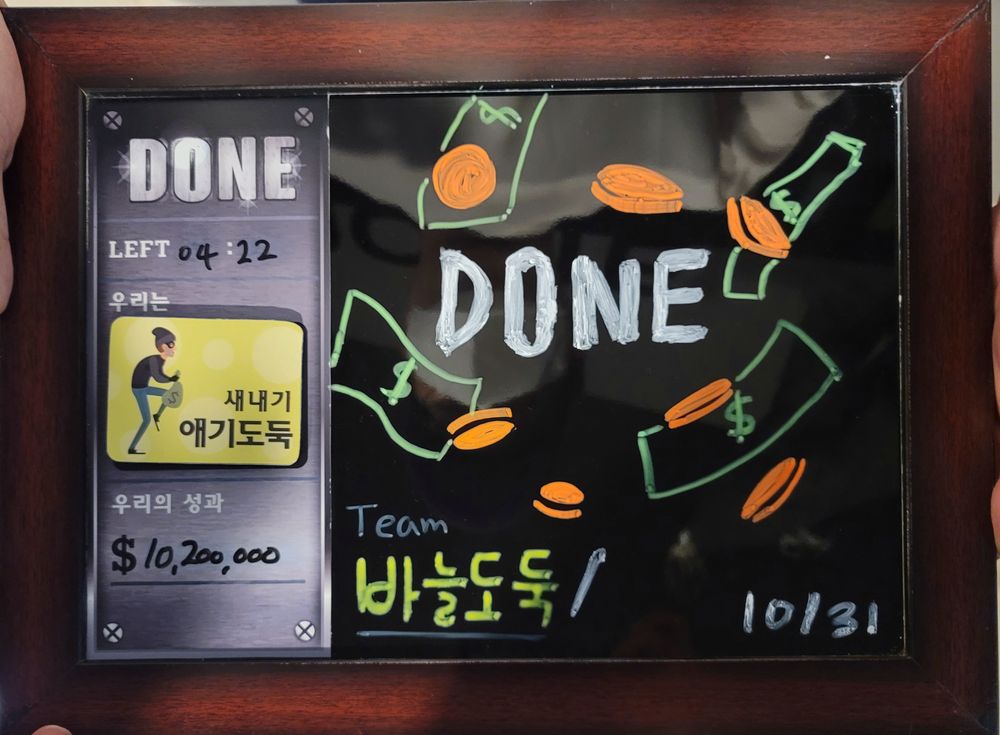 DONE
LEFT 04:22
우리는
새내기
애기도둑
우리의 성과
$10,200,000
$
DONE
$
$
$
Team
바늘도둑/
10/31